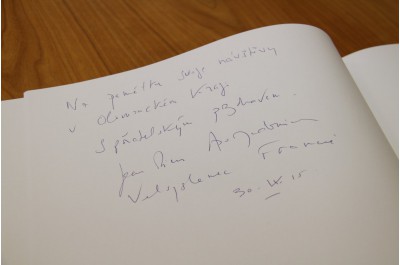 Na památku svoje návštěvy
v Olomouckém Kraji
S přátelským pozdravem.
Jean Pierre Asvazadourian
Velvyslanec Francie
30. IX. 15